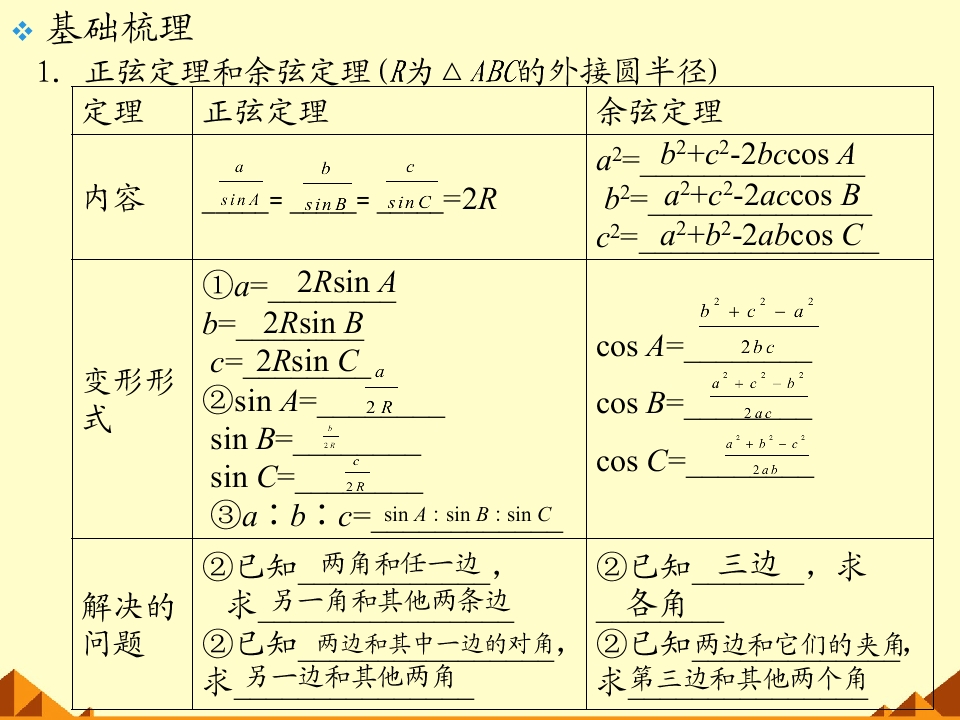 ❖ 基础梳理
1. 正弦定理和余弦定理(R为△ABC的外接圆半径)
定理 正弦定理 余弦定理
内容
a/sinA = b/sinB = c/sinC =2R
a²=b²+c²-2bccos A
b²=a²+c²-2accos B
c²=a²+b²-2abcos C
变形形
式
①a=2Rsin A
b=2Rsin B
c=2Rsin C
②sin A=a/2R
sin B=b/2R
sin C=c/2R
③a∶b∶c=sin A : sin B : sin C
cos A=b²+c²-a²/2bc
cos B=a²+c²-b²/2ac
cos C=a²+b²-c²/2ab
解决的
问题
②已知两角和任一边，
求另一角和其他两条边
②已知两边和其中一边的对角，
求另一边和其他两角
②已知三边，求
各角
②已知两边和它们的夹角，
求第三边和其他两个角